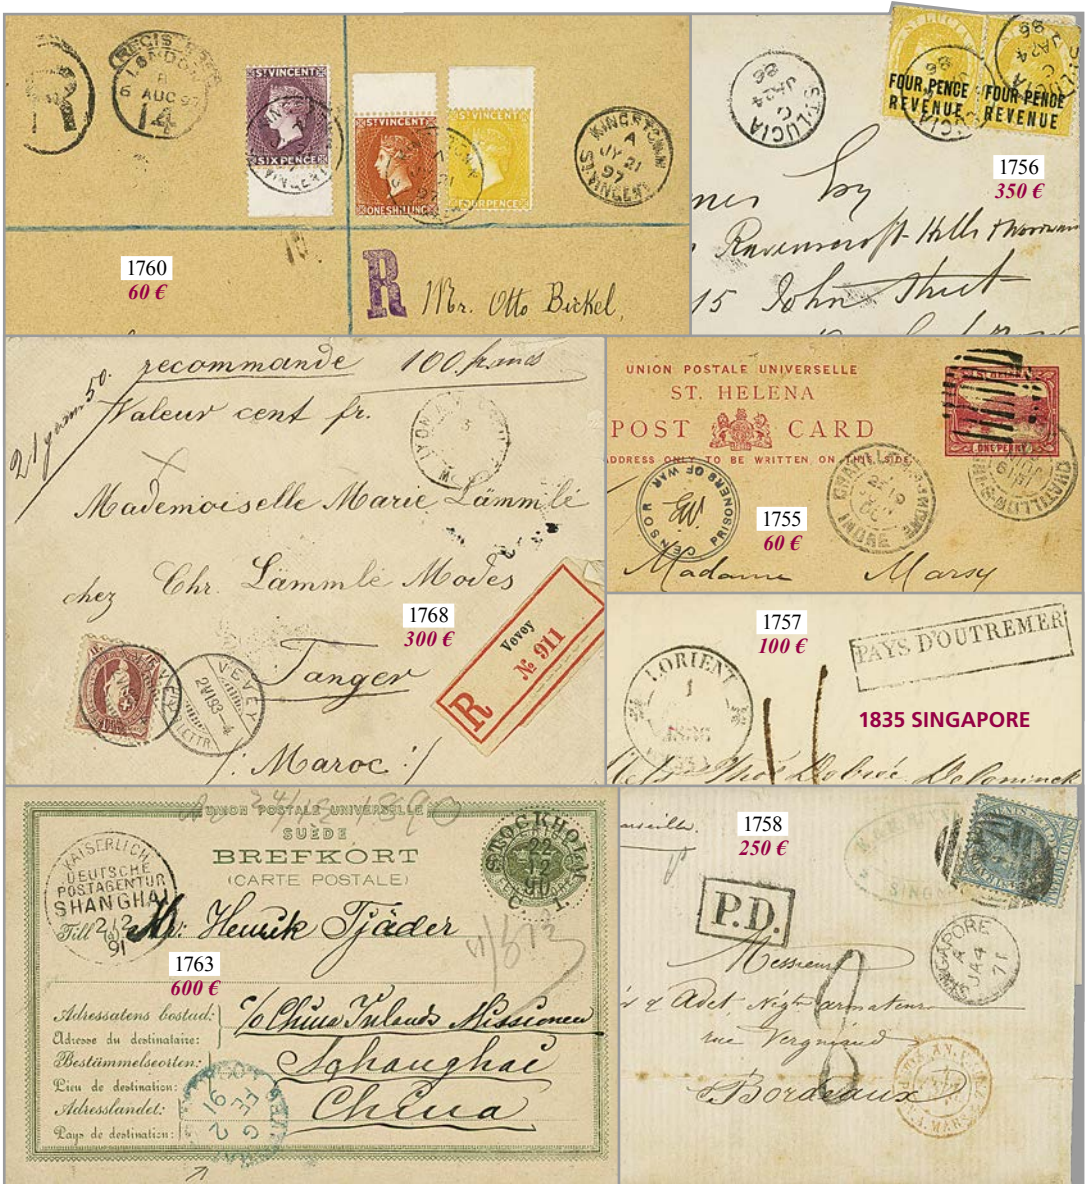 REGISTERED
LONDON
6 AUG 97
14
R
ST VINCENT
SIX PENCE
ST VINCENT
ONE SHILLING
ST VINCENT
FOURPENCE
KINGSTOWN
A
JY 21
97
ST. VINCENT
1760
60 €
R
Mr. Otto Bickel,
ST. LUCIA
C
JA 24
86
ST LUCIA
FOUR PENCE
REVENUE
FOUR PENCE
REVENUE
1756
350 €
by
Ravenscroft Hills &
15 John Street
recommandé 100 francs
Valeur cent fr.
21 gram 50.
Mademoiselle Marie Lämmlé
chez Chr. Lämmlé Modes
1768
300 €
Tanger
/: Maroc :/
VEVEY
LETTR.
R
Vevey
№ 911
UNION POSTALE UNIVERSELLE
ST. HELENA
POST CARD
ADDRESS ONLY TO BE WRITTEN ON THIS SIDE
ONE PENNY
CENSOR
PRISONERS OF WAR
1755
60 €
Madame Marsy
1757
100 €
LORIENT
1
PAYS D'OUTREMER
1835 SINGAPORE
UNION POSTALE UNIVERSELLE
SUÈDE
BREFKORT
(CARTE POSTALE)
STOCKHOLM
22
12
90
C. 1.
KAISERLICHE
DEUTSCHE
POSTAGENTUR
SHANGHAI
2/2
91
Till Mr: Henrik Tjäder
1763
600 €
Adressatens bostad:
Adresse du destinataire:
c/o China Inlands Missionen
Bestämmelseorten:
Lieu de destination:
Schanghai
Adresslandet:
Pays de destination:
China
1758
250 €
P.D.
SINGAPORE
A
JA 4
71
Messieurs
rue Vergniaud
Bordeaux
8